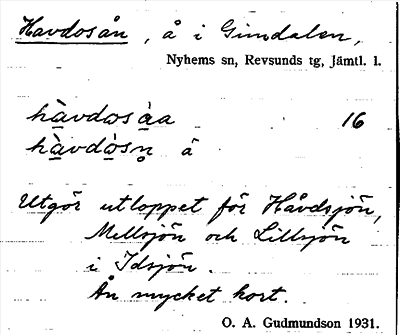 Havdosån, å i Gimdalen,
Nyhems sn, Revsunds tg, Jämtl. l.
hàvdosàa 16
hàvdòsn̥ å
Utgör utloppet för Håvdsjön,
Mellsjön och Lillsjön
i Idsjön.
Ån mycket kort.
O. A. Gudmundson 1931.